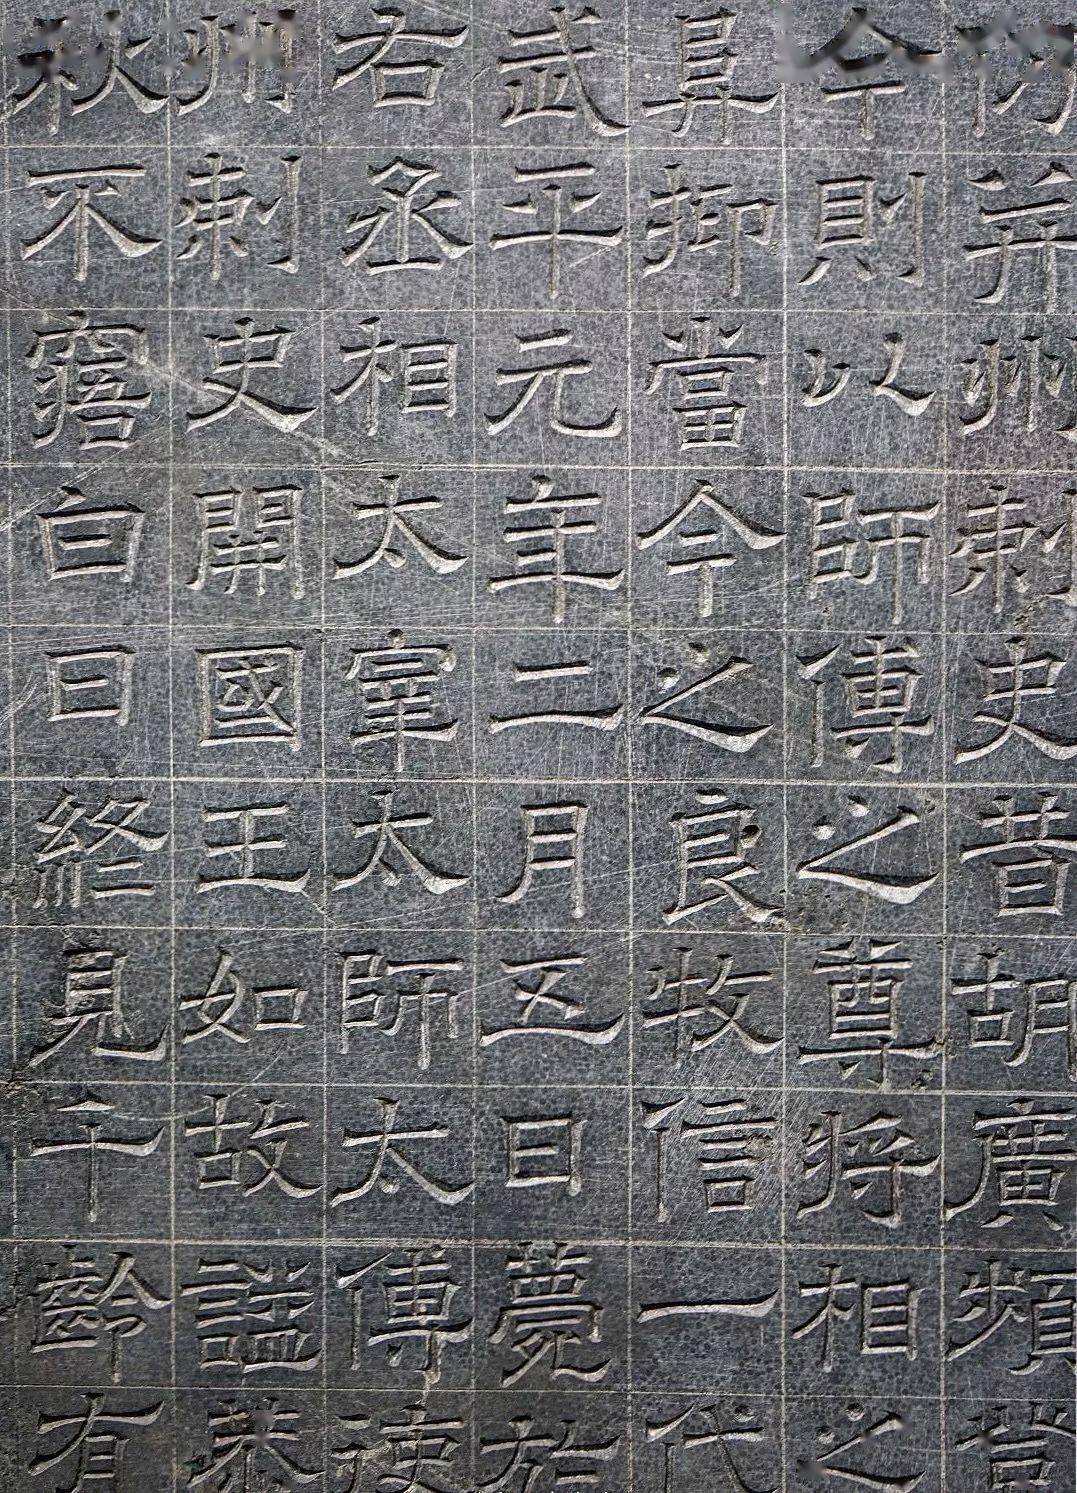 并州刺史昔胡廣頻登
今則以師傅之尊將相之
抑當今之良牧信一代
武平元年二月五日薨於
右丞相太宰太師太傅使
州刺史開國王如故謚恭
秋不寤白日終見千齡有